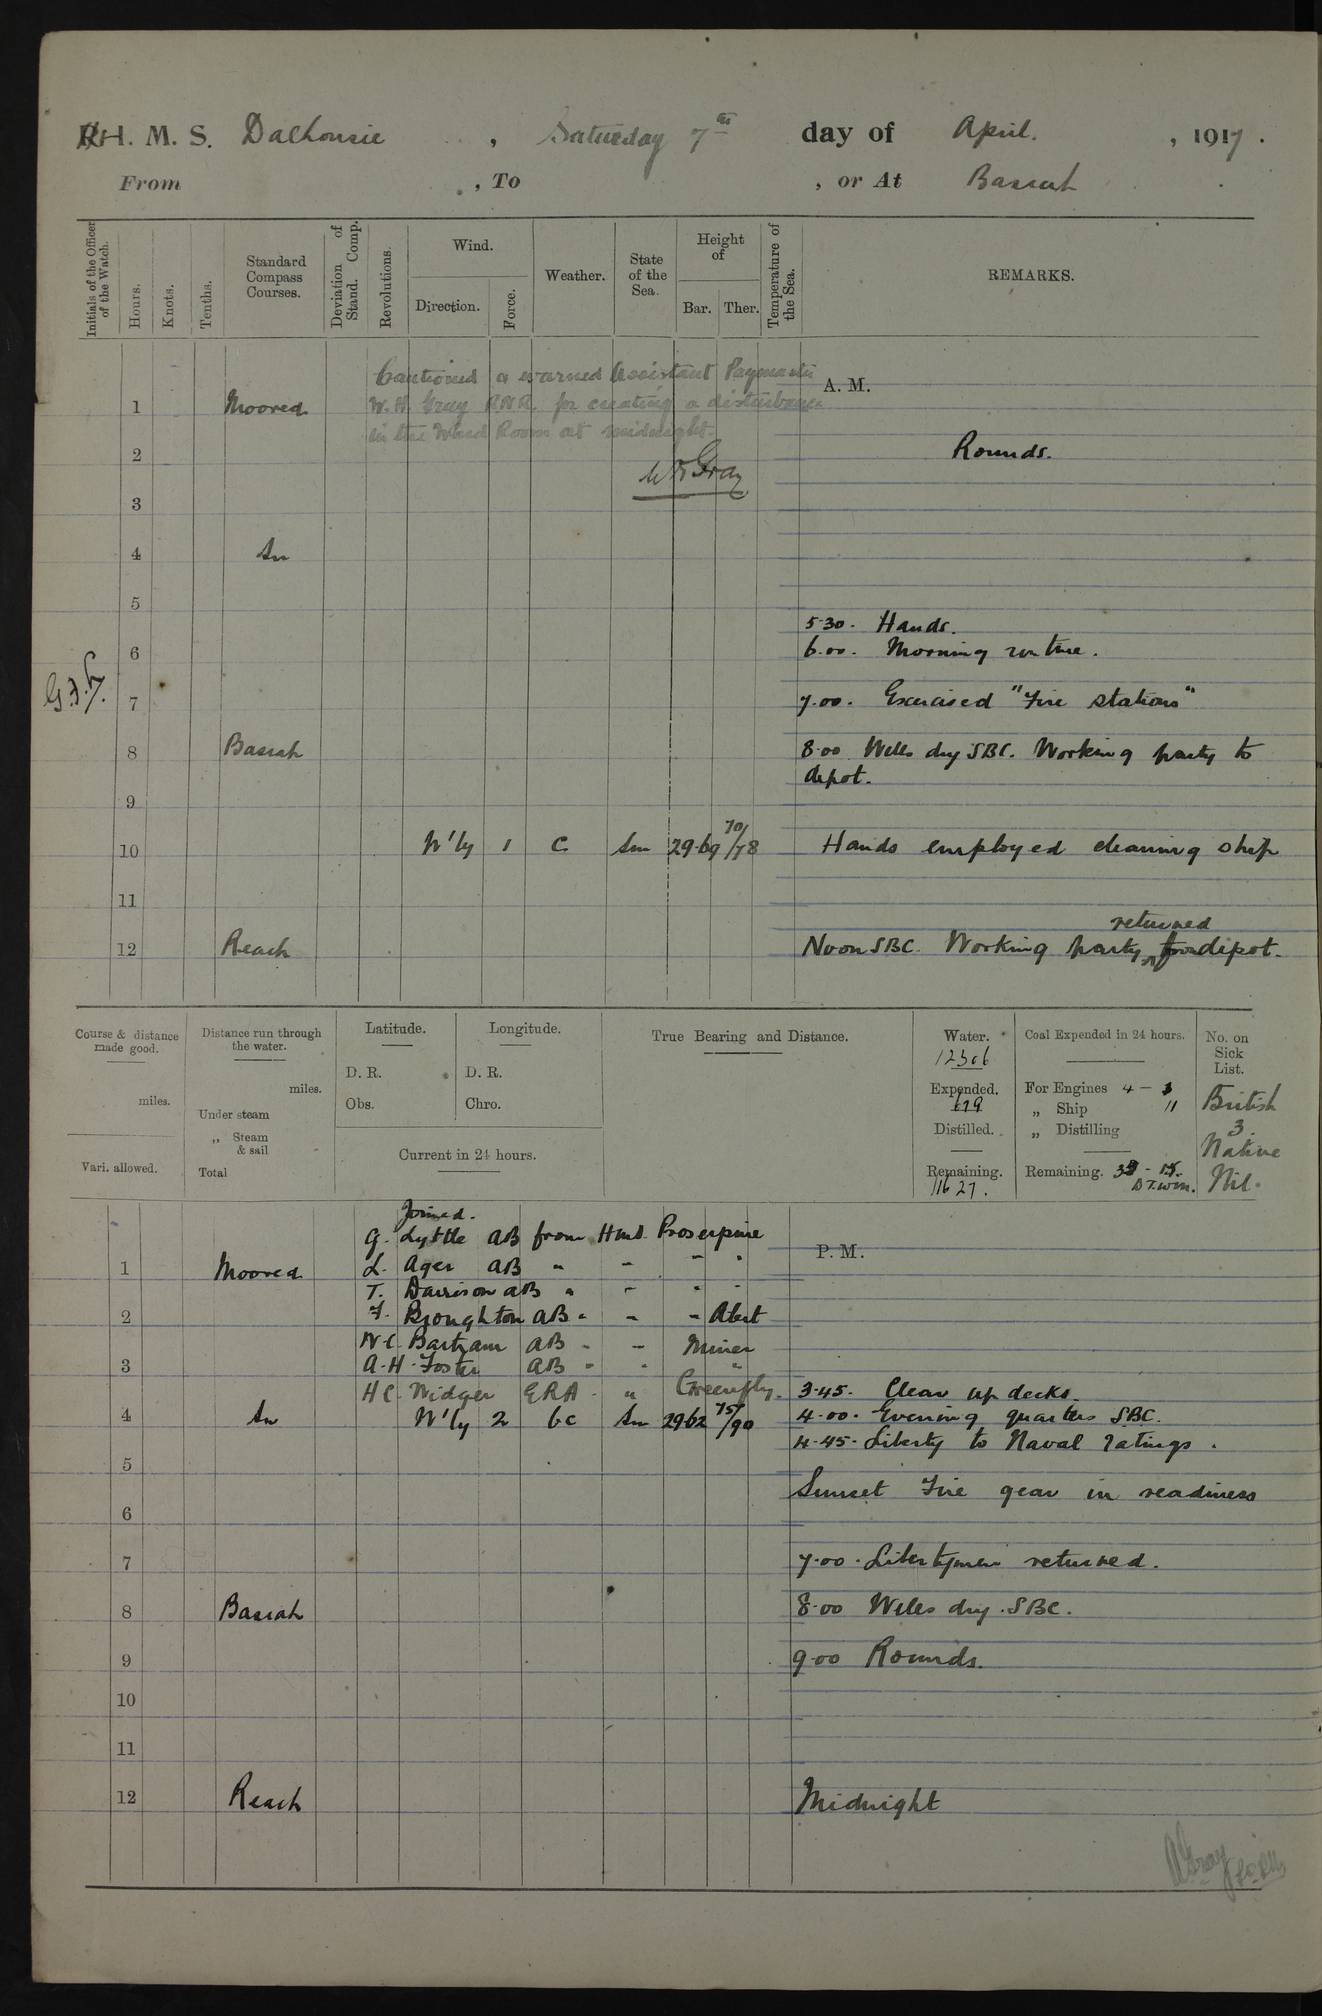 H. M. S. Dalhousie , Saturday 7th day of April. , 1917.
From , To , or At Basrah
Initials of the Officer of the Watch.
Hours.
Knots.
Tenths.
Standard Compass Courses.
Deviation of Stand. Comp.
Revolutions.
Wind.
Direction.
Force.
Weather.
State of the Sea.
Height of
Bar.
Ther.
Temperature of the Sea.
REMARKS.
Cautioned & warned Assistant Paymaster
A. M.
1 Moored W. R. Gray R.N.R. for creating a disturbance
in the Ward Room at midnight.
2 Rounds.
W R Gray
3
4 In
5
5.30. Hands.
6 6.00. Morning routine.
G.F.
7 7.00. Exercised "Fire stations"
8 Basrah 8.00 Wells dry SBC. Working party to
depot.
9
10 N'ly 1 C Sm 29.69 70/78 Hands employed cleaning ship
11
returned
12 Reach Noon SBC. Working party from depot.
Course & distance made good.
miles.
Vari. allowed.
Distance run through the water.
miles.
Under steam
„ Steam & sail
Total
Latitude.
D. R.
Obs.
Longitude.
D. R.
Chro.
Current in 24 hours.
True Bearing and Distance.
Water.
12306
Expended.
679
Distilled.
Remaining.
11627.
Coal Expended in 24 hours.
For Engines 4 -
„ Ship 11
„ Distilling
Remaining. - 15.
No. on Sick List.
British
3.
Native
Nil.
Joined.
G. Lyttle AB from HMS Proserpine
P. M.
L. Ager AB " " " "
1 Moored
T. Davison AB " " " "
2 F. Broughton AB " " " Alert
W.C. Bartram AB " " Miner
3 A.H. Foster AB " " "
H C. Widger ERA " " Greenfly. 3.45. Clear up decks.
4 In N'ly 2 bc Sm 29.62 75/90 4.00. Evening quarters SBC.
4.45. Liberty to Naval ratings.
5
Sunset Fire gear in readiness
6
7 7.00. Libertymen returned.
8 Basrah 8.00 Wells dry. SBC.
9 9.00 Rounds.
10
11
12 Reach Midnight
A Gray